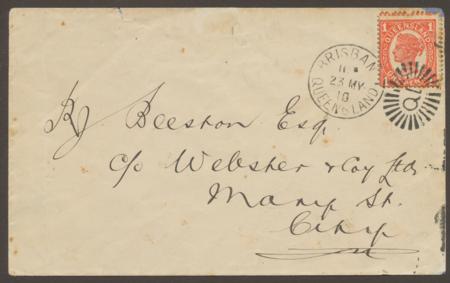 1 QUEENSLAND 1
BRISBANE
11
23 MY
10
QUEENSLAND
Q
R J Beeston Esq.
c/o Webster & Coy Ltd.
Mary St.
City